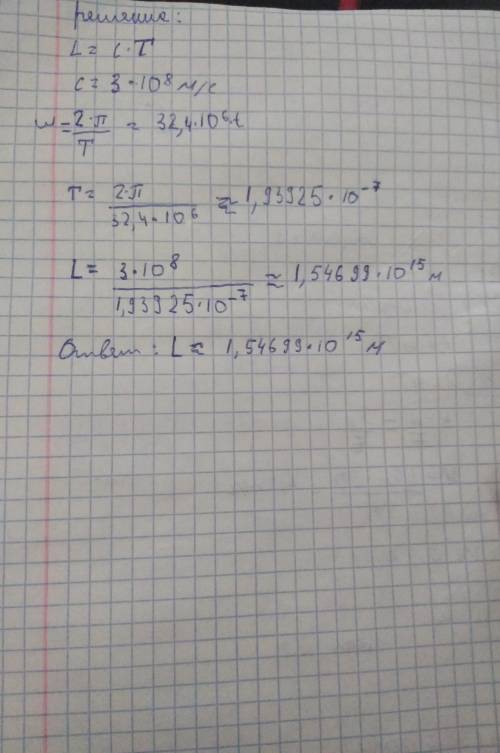 решение:
L = c · T
c = 3 · 10⁸ м/с
w = 2·π / T = 32,4·10⁶·t
T = 2·π / 32,4·10⁶ ≈ 1,93925·10⁻⁷
L = 3·10⁸ / 1,93925·10⁻⁷ ≈ 1,54699·10¹⁵ м
Ответ: L ≈ 1,54699·10¹⁵ м